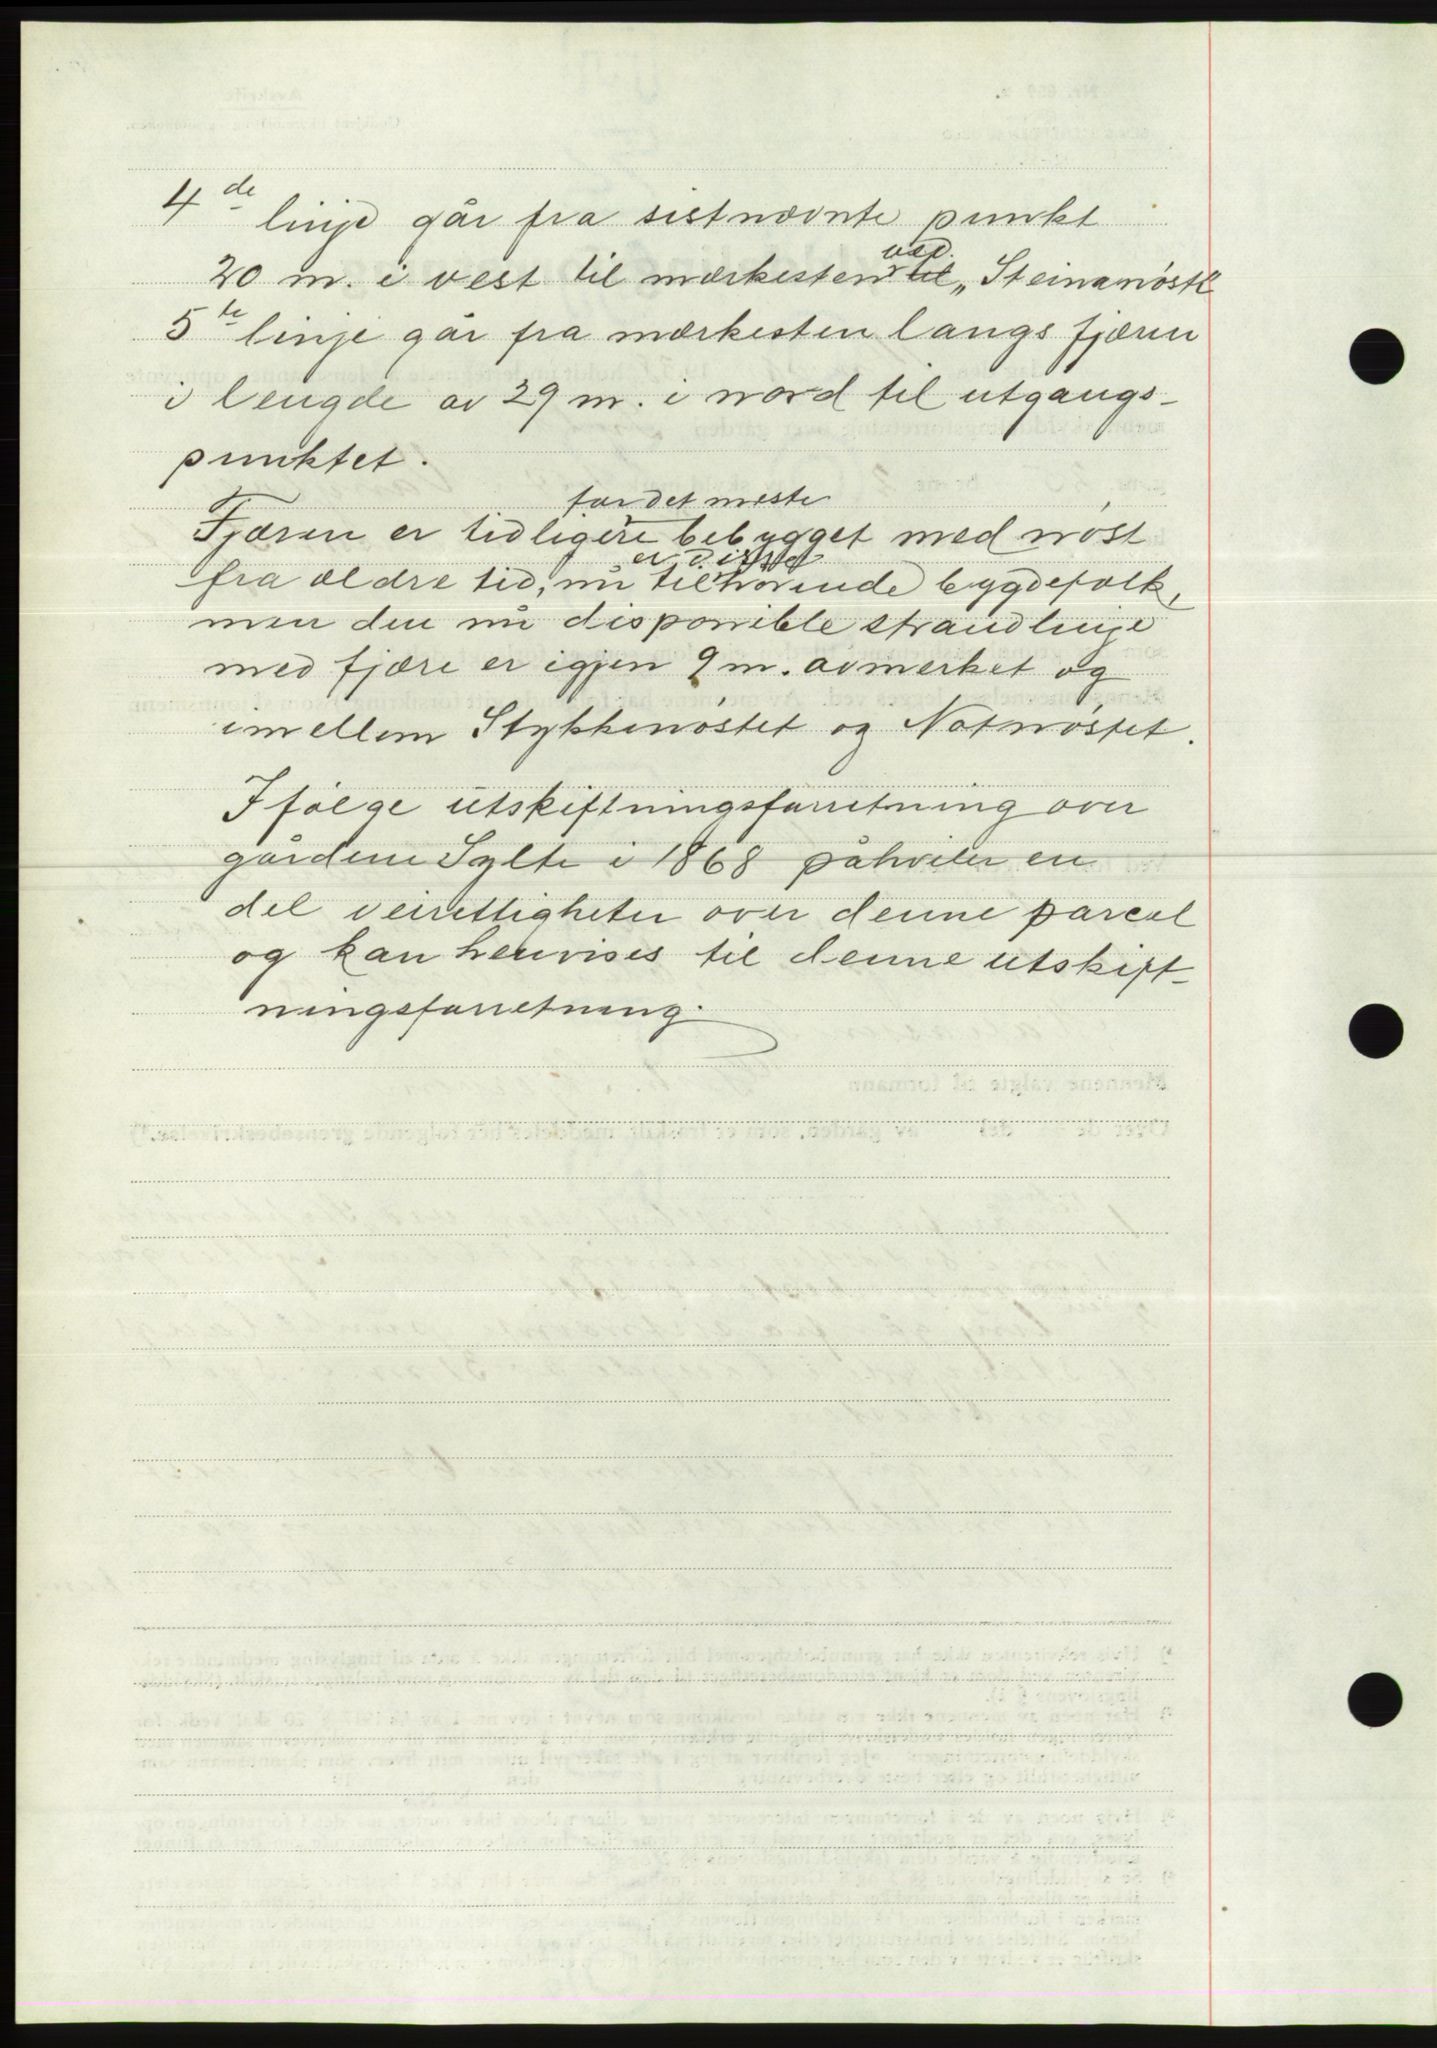 4de linje går fra sistnævnte punkt
20 m. i vest til mærkesten ved „Steinanöst"
5te linje går fra mærkesten langs fjæren
i lengde av 29 m. i nord til utgangs-
punktet.
for det meste
Fjæren er tidligere bebygget med nöst
fra ældre tid, nu tilhörende bygdefolk,
men den nu disponible strandlinje
med fjære er igjen 9 m. avmerket og
imellem Stykkenöstet og Notnöstet.
Ifölge utskiftningsforretning over
gårdene Sylte i 1868 påhviler en
del veirettigheter over denne parcel
og kan henvises til denne utskift-
ningsforretning.